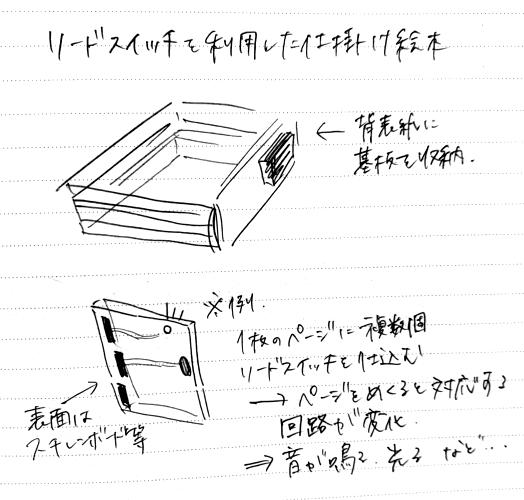 リードスイッチを利用した仕掛け絵本
← 背表紙に
基板を収納.
※例.
1枚のページに複数個
リードスイッチを仕込む
→ ページをめくると対応する
回路が変化.
⇒ 音が鳴る、光る など…
表面は
スチレンボード等